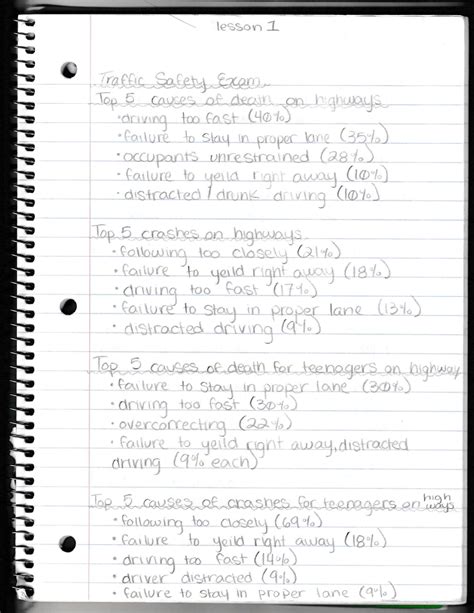 lesson 1
Traffic Safety Exam
Top 5 cauces of death on highways
• driving too fast (40%)
• failure to stay in proper lane (35%)
• occupants unrestrained (28%)
• failure to yeild right away (10%)
• distracted / drunk driving (10%)
Top 5 crashes on highways
• following too closely (21%)
• failure to yeild right away (18%)
• driving too fast (17%)
• failure to stay in proper lane (13%)
• distracted driving (9%)
Top 5 causes of death for teenagers on highway
• failure to stay in proper lane (30%)
• driving too fast (30%)
• overcorrecting (22%)
• failure to yeild right away, distracted
driving (9% each)
Top 5 causes of crashes for teenagers on high
ways
• following too closely (69%)
• failure to yeild right away (18%)
• driving too fast (14%)
• driver distracted (9%)
• failure to stay in proper lane (9%)